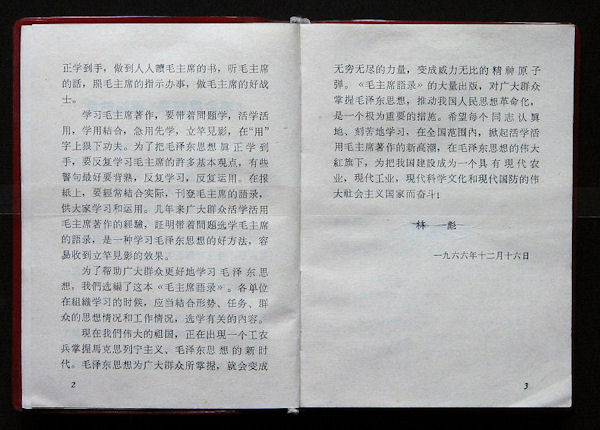 正学到手，做到人人讀毛主席的书，听毛主席
的話，照毛主席的指示办事，做毛主席的好战
士。
学习毛主席著作，要带着問題学，活学活
用，学用結合，急用先学，立竿見影，在“用”
字上狠下功夫。为了把毛泽东思想真正学到
手，要反复学习毛主席的許多基本观点，有些
警句最好要背熟，反复学习，反复运用。在报
紙上，要經常結合实际，刊登毛主席的語录，
供大家学习和运用。几年来广大群众活学活用
毛主席著作的經驗，証明带着問題选学毛主席
的語录，是一种学习毛泽东思想的好方法，容
易收到立竿見影的效果。
为了帮助广大群众更好地学习毛泽东思
想，我們选編了这本《毛主席語录》。各单位
在組織学习的时候，应当結合形势、任务、群
众的思想情况和工作情况，选学有关的內容。
現在我們伟大的祖国，正在出現一个工农
兵掌握馬克思列宁主义、毛泽东思想的新时
代。毛泽东思想为广大群众所掌握，就会变成
2
无穷无尽的力量，变成威力无比的精神原子
弹。《毛主席語录》的大量出版，对广大群众
掌握毛泽东思想，推动我国人民思想革命化，
是一个极为重要的措施。希望每个同志认真
地、刻苦地学习，在全国范围內，掀起活学活
用毛主席著作的新高潮，在毛泽东思想的伟大
紅旗下，为把我国建設成为一个具有現代农
业，現代工业，現代科学文化和現代国防的伟
大社会主义国家而奋斗！
林彪
一九六六年十二月十六日
3